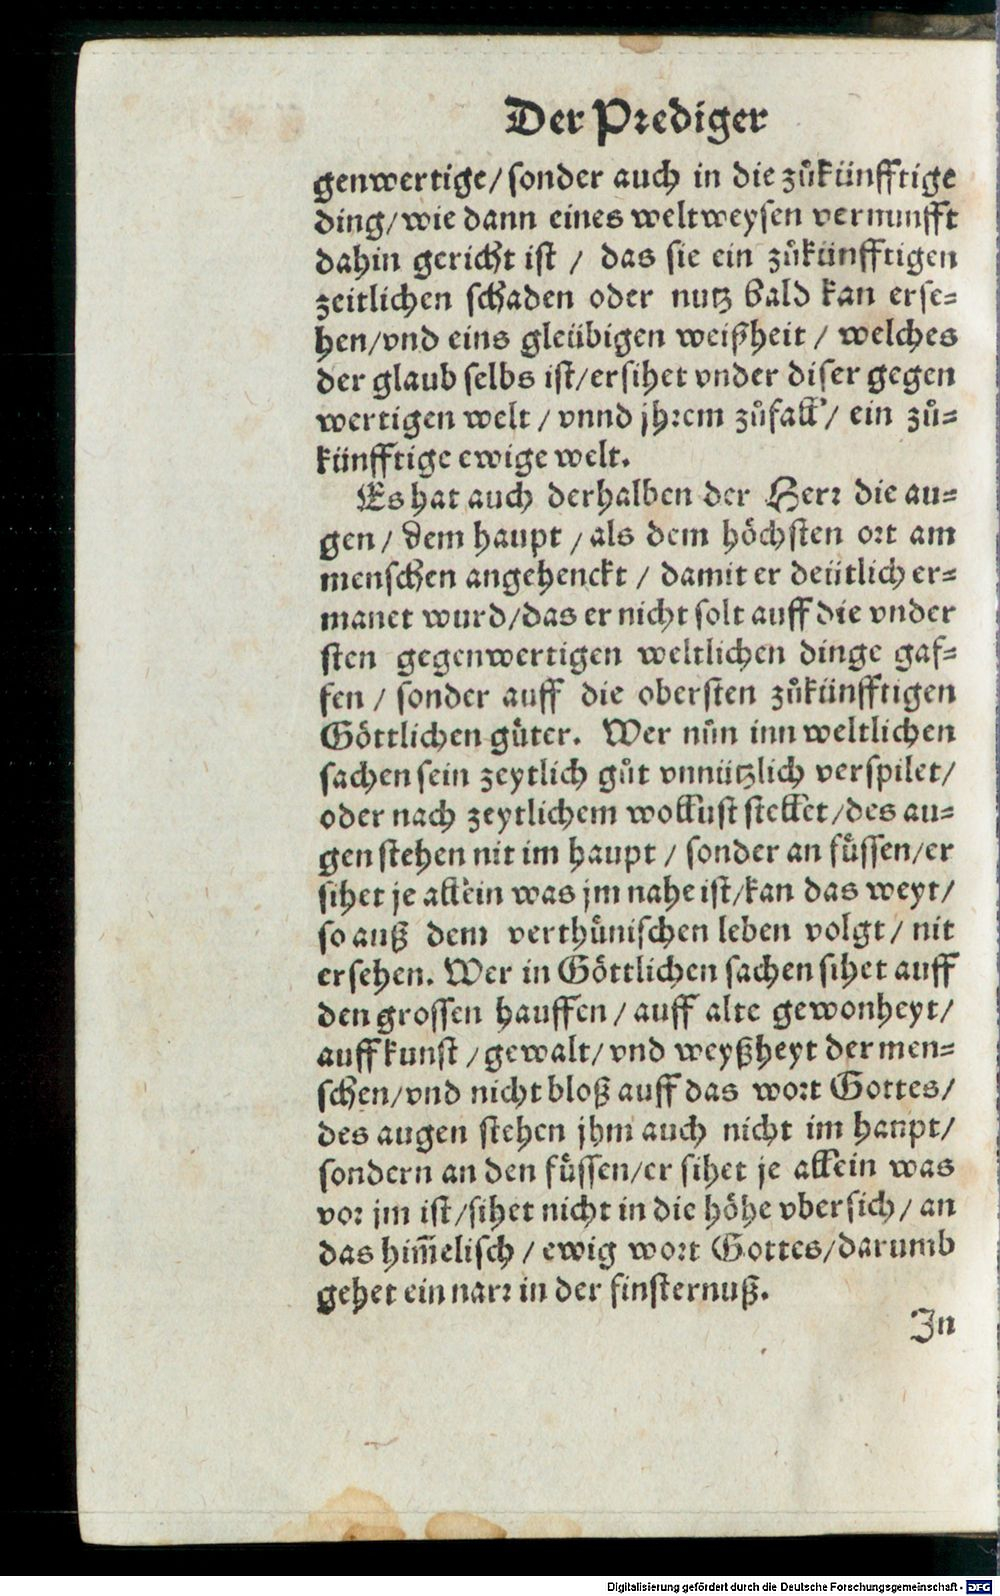 Der Prediger
genwertige/ sonder auch in die zůkünfftige
ding/ wie dann eines weltweysen vernunfft
dahin gericht ist / das sie ein zůkünfftigen
zeitlichen schaden oder nutz bald kan erse-
hen/ vnd eins gleübigen weißheit / welches
der glaub selbs ist/ ersihet vnder diser gegen
wertigen welt / vnnd jhrem zůfall / ein zů-
künfftige ewige welt.
Es hat auch derhalben der Herr die au-
gen / dem haupt / als dem höchsten ort am
menschen angehenckt / damit er deütlich er-
manet wurd/ das er nicht solt auff die vnder
sten gegenwertigen weltlichen dinge gaf-
fen / sonder auff die obersten zůkünfftigen
Göttlichen gůter. Wer nůn inn weltlichen
sachen sein zeytlich gůt vnnützlich verspilet/
oder nach zeytlichem wollust stellet/ des au-
gen stehen nit im haupt / sonder an fůssen/ er
sihet je allein was jm nahe ist/ kan das weyt/
so auß dem verthůnischen leben volgt / nit
ersehen. Wer in Göttlichen sachen sihet auff
den grossen hauffen / auff alte gewonheyt/
auff kunst / gewalt/ vnd weyßheyt der men-
schen/ vnd nicht bloß auff das wort Gottes/
des augen stehen jhm auch nicht im haupt/
sondern an den fůssen/ er sihet je allein was
vor jm ist/ sihet nicht in die höhe vbersich / an
das him̃elisch / ewig wort Gottes/ darumb
gehet ein narr in der finsternuß.
In
Digitalisierung gefördert durch die Deutsche Forschungsgemeinschaft - DFG